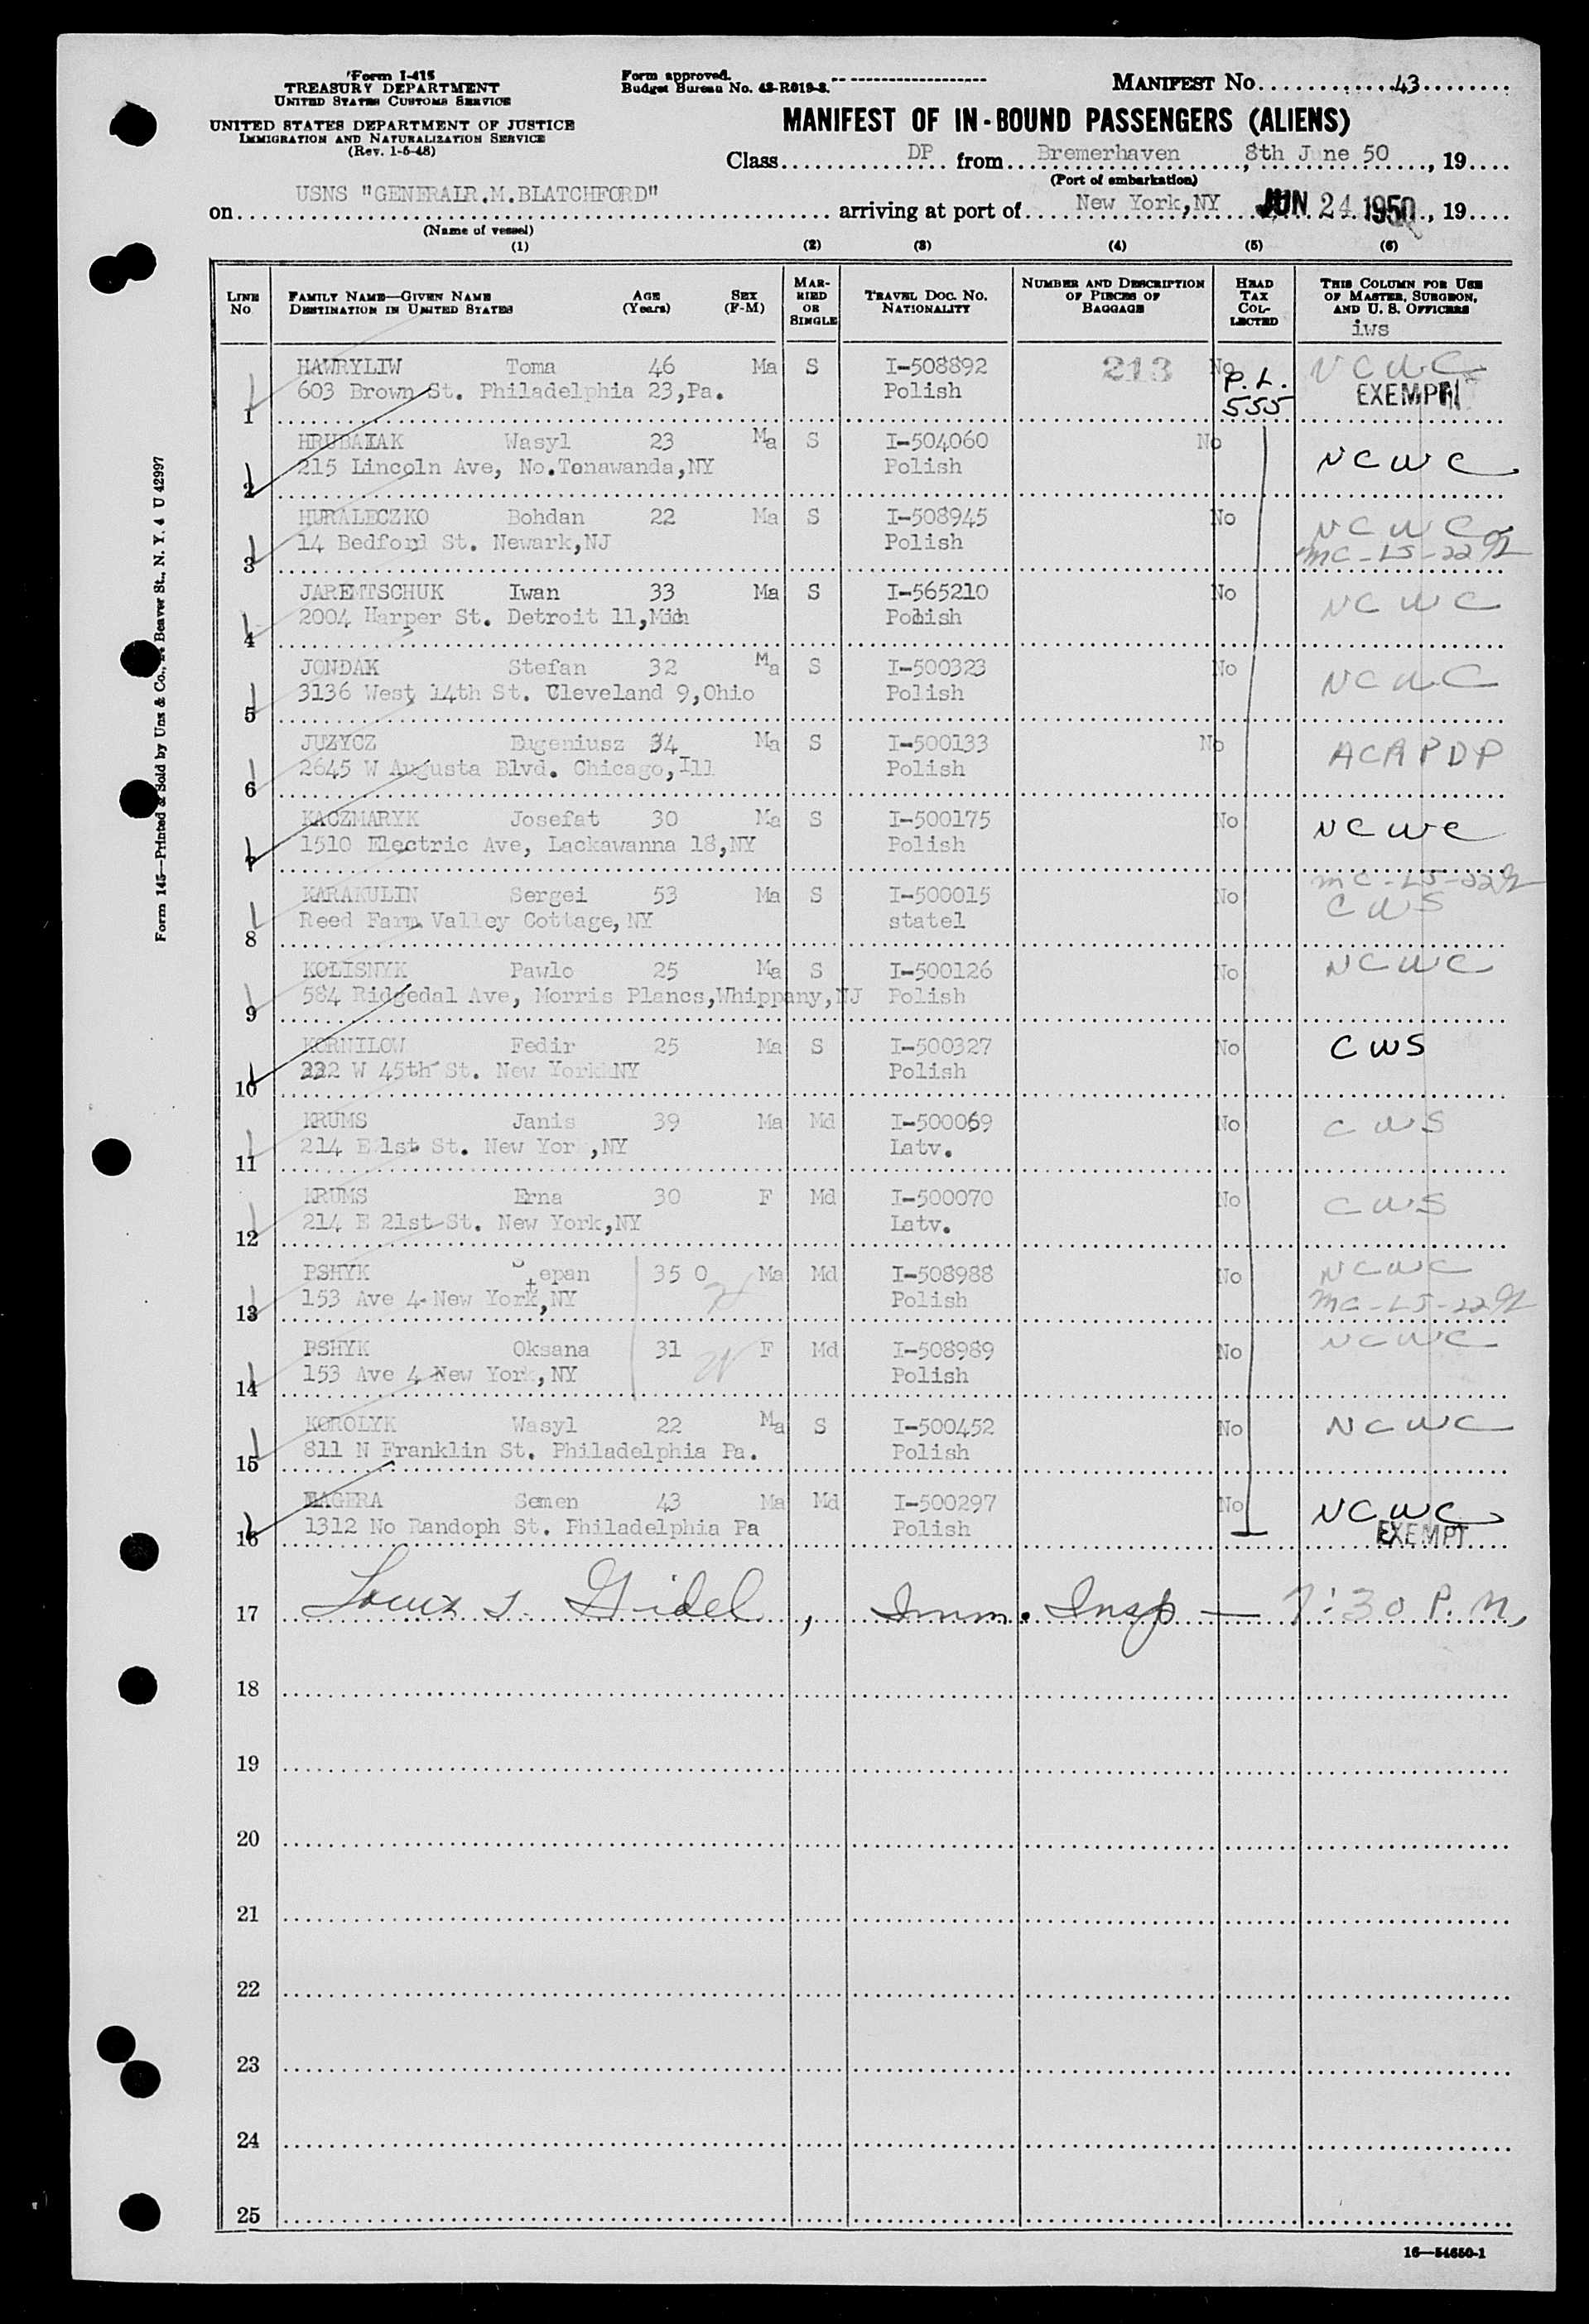 Form I-415
TREASURY DEPARTMENT
UNITED STATES CUSTOMS SERVICE
UNITED STATES DEPARTMENT OF JUSTICE
IMMIGRATION AND NATURALIZATION SERVICE
(Rev. 1-5-48)
Form approved.
Budget Bureau No. 43-R019-3.
MANIFEST No. 43
MANIFEST OF IN-BOUND PASSENGERS (ALIENS)
Class DP from Bremerhaven, 8th June 50, 19
(Port of embarkation)
on USNS "GENERALR.M.BLATCHFORD" arriving at port of New York,NY JUN 24 1950, 19
(Name of vessel)
(1) (2) (3) (4) (5) (6)
LINE No. FAMILY NAME—GIVEN NAME DESTINATION IN UNITED STATES AGE (Years) SEX (F-M) MARRIED OR SINGLE TRAVEL DOC. NO. NATIONALITY NUMBER AND DESCRIPTION OF PIECES OF BAGGAGE HEAD TAX COLLECTED THIS COLUMN FOR USE OF MASTER, SURGEON, AND U. S. OFFICERS
iws
HAWRYLIW Toma 46 Ma S I-508892 213 No NCWC
1 603 Brown St. Philadelphia 23,Pa. Polish P.L. 555 EXEMPT
Wasyl 23 Ma S I-504060 No
2 215 Lincoln Ave, No.Tonawanda,NY Polish NCWC
HURALECZKO Bohdan 22 Ma S I-508945 No NCWC
3 14 Bedford St. Newark,NJ Polish MC-LJ-22
JAREMTSCHUK Iwan 33 Ma S I-565210 No NCWC
4 2004 Harper St. Detroit 11,Mich Polish
JONDAK Stefan 32 Ma S I-500323 No NCWC
5 3136 West 14th St. Cleveland 9,Ohio Polish
JUZYCZ Eugeniusz 34 Ma S I-500133 No ACAPDP
6 2645 W Augusta Blvd. Chicago,Ill Polish
KACZMARYK Josefat 30 Ma S I-500175 No NCWC
7 1510 Electric Ave, Lackawanna 18,NY Polish
MC-LJ-22
KARAKULIN Sergei 53 Ma S I-500015 No CWS
8 Reed Farm Valley Cottage,NY statel
KOLISNYK Pawlo 25 Ma S I-500126 No NCWC
9 584 Ridgedal Ave, Morris Plancs,Whippany,NJ Polish
KORNILOW Fedir 25 Ma S I-500327 No CWS
10 W 45th St. New York NY Polish
KRUMS Janis 39 Ma Md I-500069 No CWS
11 214 E 1st St. New Yor ,NY Latv.
KRUMS Erna 30 F Md I-500070 No CWS
12 214 E 21st St. New York,NY Latv.
PSHYK Stepan 35 0 Ma Md I-508988 No NCWC
13 153 Ave 4 New York,NY Polish MC-LJ-22
PSHYK Oksana 31 F Md I-508989 No NCWC
14 153 Ave 4 New Yor ,NY Polish
KOROLYK Wasyl 22 Ma S I-500452 No NCWC
15 811 N Franklin St. Philadelphia Pa. Polish
Semen 43 Ma Md I-500297 No NCWC
16 1312 No Randoph St. Philadelphia Pa Polish EXEMPT
17 Gidel, Imm. Insp — 7:30 P.M.
18
19
20
21
22
23
24
25
16—54650-1
Form 145—Printed & Sold by Unz & Co., Beaver St., N. Y. 4 U 42997